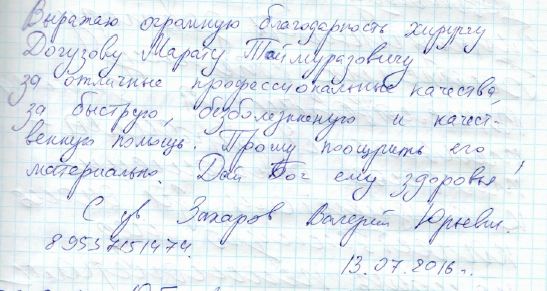 Выражаю огромную благодарность хирургу
Догузову Марату Таймуразовичу
за отличные профессиональные качества,
за быструю, безболезненную и качест-
венную помощь. Прошу поощрить его
материально. Дай Бог ему здоровья!
С ув Захаров Валерий Юрьевич.
89537151474.
13.07.2016г.